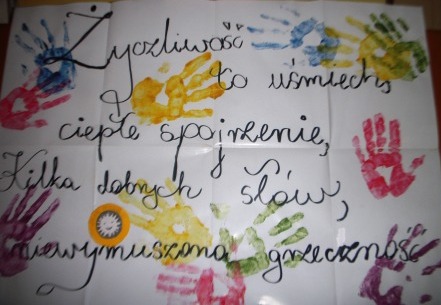 Życzliwość
to uśmiech,
ciepłe spojrzenie,
Kilka dobrych słów,
niewymuszona grzeczność